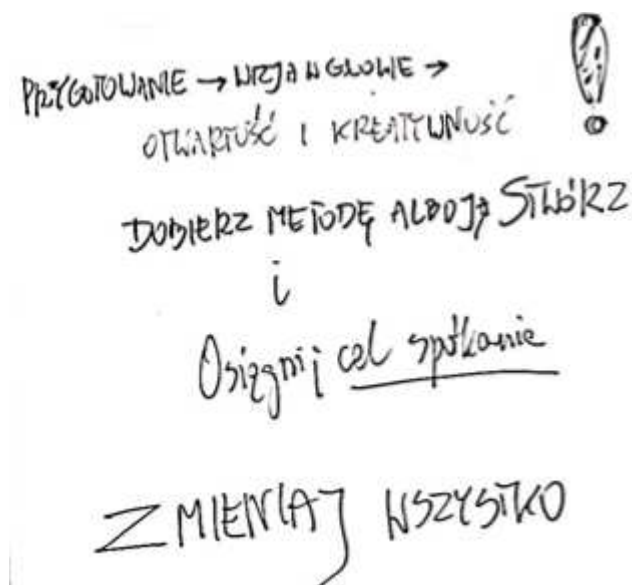 PRZYGOTOWANIE → WIZJA W GŁOWIE → !
OTWARTOŚĆ I KREATYWNOŚĆ
DOBIERZ METODĘ ALBO JĄ STWÓRZ
i
Osiągnij cel spotkanie
ZMIENIAJ WSZYSTKO